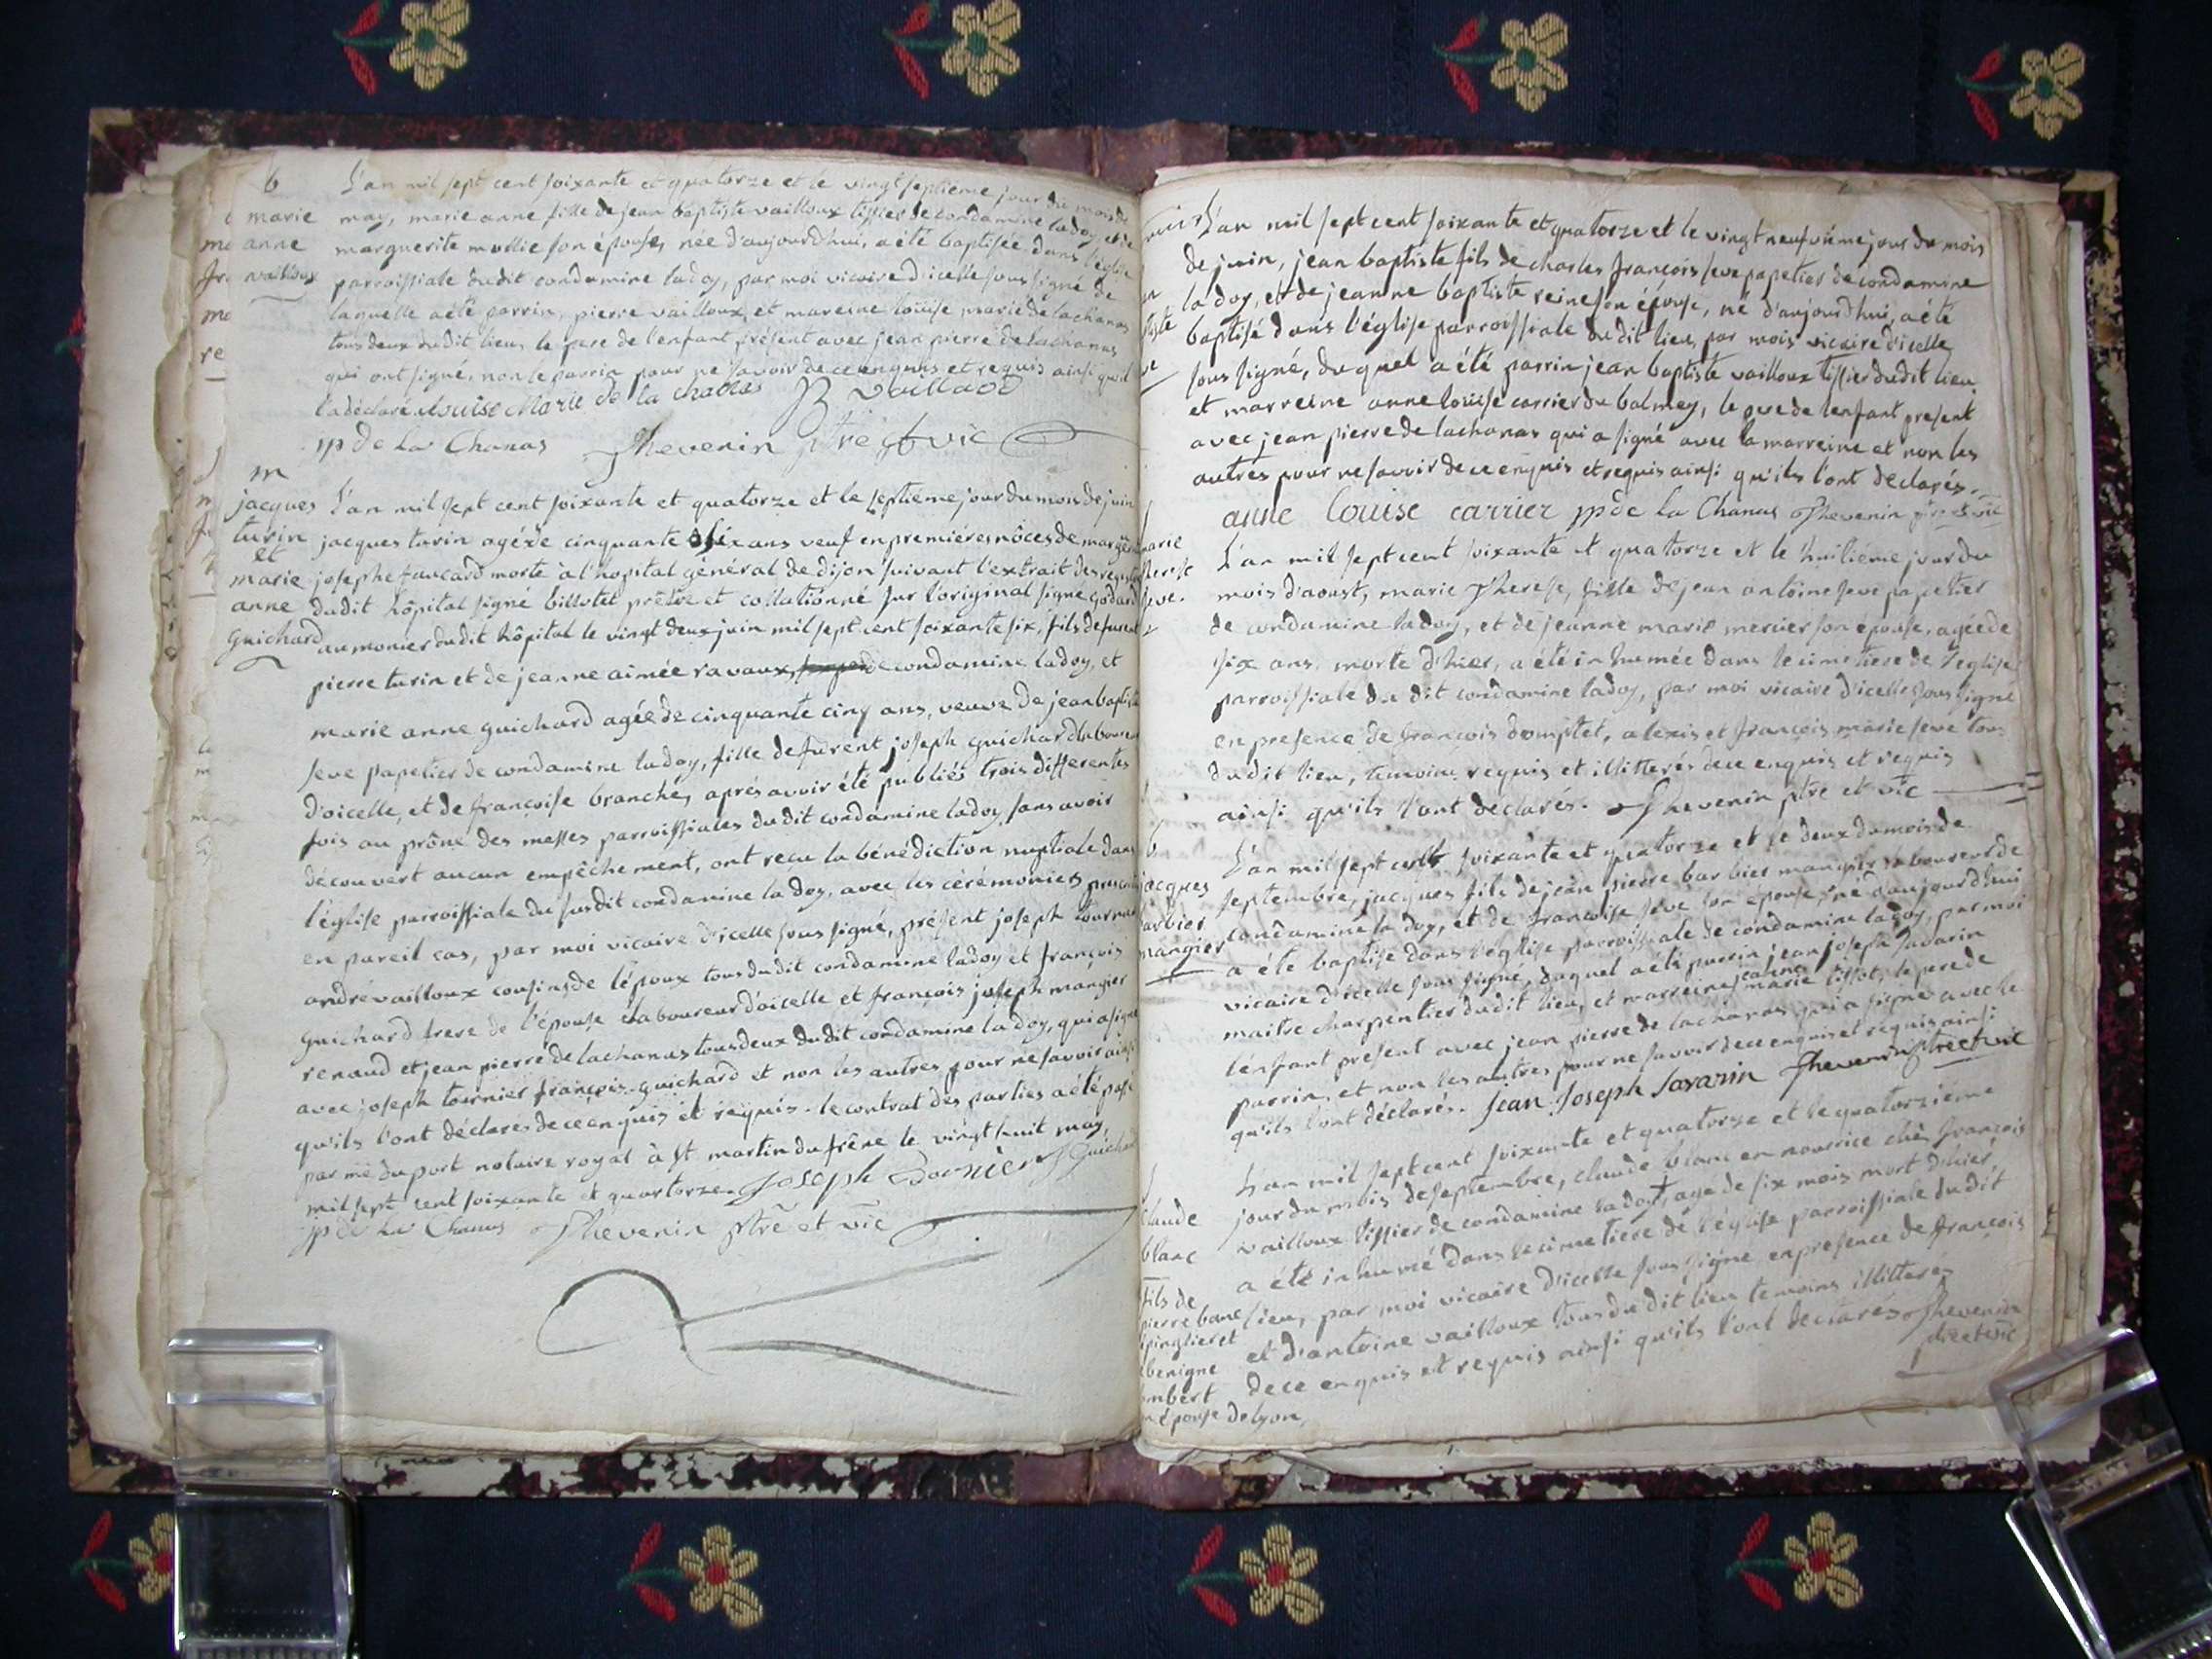 b
marie
anne
vailloux
L'an mil sept cent soixante et quatorze et le vingt septième jour du mois de
may, marie anne fille de jean baptiste vailloux tissier de condamine la doy, et de
marguerite mollie son épouse, née d'aujourd'hui, a été baptisée dans l'église
parroissiale dudit condamine la doy, par moi vicaire d'icelle sous signé de
laquelle a été parrin, pierre vailloux, et mareine louise marie de lachanas
tous deux dudit lieu, le pere de l'enfant présent avec jean pierre de lachanas
qui ont signé, non le parrin pour ne savoir de ce enquis et requis ainsi qu'il
l'a déclaré. Louise Marie de la chanas JB vailloud
jp de la Chanas Thevenin ptre et vic
m
jacques
turin
et
marie
anne
guichard
L'an mil sept cent soixante et quatorze et le septieme jour du mois de juin
jacques turin agé de cinquante six ans veuf en premières nôces de marguerite
josephe faucard morte à l'hopital général de dijon suivant l'extrait des registres
dudit hôpital signé billotet prêtre et collationné sur l'original signé godard
aumonier dudit hôpital le vingt deux juin mil sept cent soixante six, fils de furent
pierre turin et de jeanne aimée ravaux, de condamine la doy, et
marie anne guichard agée de cinquante cinq ans, veuve de jean baptiste
seve papetier de condamine la doy, fille de furent joseph guichard laboureur
d'oicelle, et de françoise branche, aprés avoir été publiés trois differentes
fois au prône des messes parroissiales dudit condamine la doy sans avoir
découvert aucun empêchement, ont recu la bénédiction nuptiale dans
l'église parroissiale du susdit condamine la doy, avec les cérémonies prescrites
en pareil cas, par moi vicaire d'icelle sous signé, présent joseph tournier
andré vailloux cousins de l'époux tous dudit condamine la doy et françois
guichard frere de l'épouse laboureur d'oicelle et françois joseph mangier
renaud et jean pierre de lachanas tous deux dudit condamine la doy, qui a signé
avec joseph tournier françois guichard et non les autres pour ne savoir ainsi
qu'ils l'ont déclarés de ce enquis et requis. le contrat des parties a été passé
par me duport notaire royal à st martin du frêne le vingt huit may,
mil sept cent soixante et quatorze. Joseph Tornier f Guichard
jp de la Chanas Thevenin ptre et vic
L'an mil sept cent soixante et quatorze et le vingt neufviéme jour du mois
de juin, jean baptiste fils de charles françois seve papetier de condamine
la doy, et de jeanne baptiste reine son épouse, né d'aujourd'hui, a été
baptisé dans l'église parroissiale dudit lieu, par mois vicaire d'icelle
sous signé, du quel a été parrin jean baptiste vailloux tissier dudit lieu
et marreine anne louise carrier du balmey, le pere de l'enfant present
avec jean pierre de lachanas qui a signé avec la marreine et non les
autres pour ne savoir de ce enquis et requis ainsi qu'ils l'ont déclarés.
anne louise carrier jp de la Chanas Thevenin ptre et vic
marie
therese
seve.
L'an mil sept cent soixante et quatorze et le huitiéme jour du
mois d'aoust, marie Therese, fille de jean antoine seve papetier
de condamine la doy, et de jeanne marie mercier son épouse, agée de
six ans, morte d'hier, a été inhumée dans le cimetiere de l'église
parroissiale du dit condamine la doy, par moi vicaire d'icelle sous signé
en presence de françois domptet, alexis et françois marie seve tous
du dit lieu, témoins requis et illitterés de ce enquis et requis
ainsi qu'ils l'ont déclarés. Thevenin ptre et vic
b
jacques
barbier
mangier
L'an mil sept cent soixante et quatorze et le deux du mois de
septembre, jacques fils de jean pierre barbier mangier laboureur de
condamine la doy, et de françoise seve son épouse, né d'aujourd'hui
a été baptisé dans l'église parroissiale de condamine la doy, par moi
vicaire d'icelle sous signé, duquel a été parrin jean joseph Savarin
maitre charpentier dudit lieu, et marreine jeanne marie tissot, le pere de
l'enfant present avec jean pierre de lachanas qui a signé avec le
parrin, et non les autres pour ne savoir de ce enquis et requis ainsi
qu'ils l'ont déclarés. Jean Joseph Savarin Thevenin ptre et vic
claude
blanc
fils de
pierre banc
épinglier et
benigne
épouse de lyon,
L'an mil sept cent soixante et quatorze et le quatorziéme
jour du mois de septembre, claude blanc en nourrice chés françois
vailloux tissier de condamine la doy, agé de six mois mort d'hier,
a été inhumé dans le cimetiere de l'église parroissiale dudit
lieu, par moi vicaire d'icelle sous signé en presence de françois
et d'antoine vailloux tous dudit lieu temoins illitterés
de ce enquis et requis ainsi qu'ils l'ont déclarés. Thevenin
ptre et vic